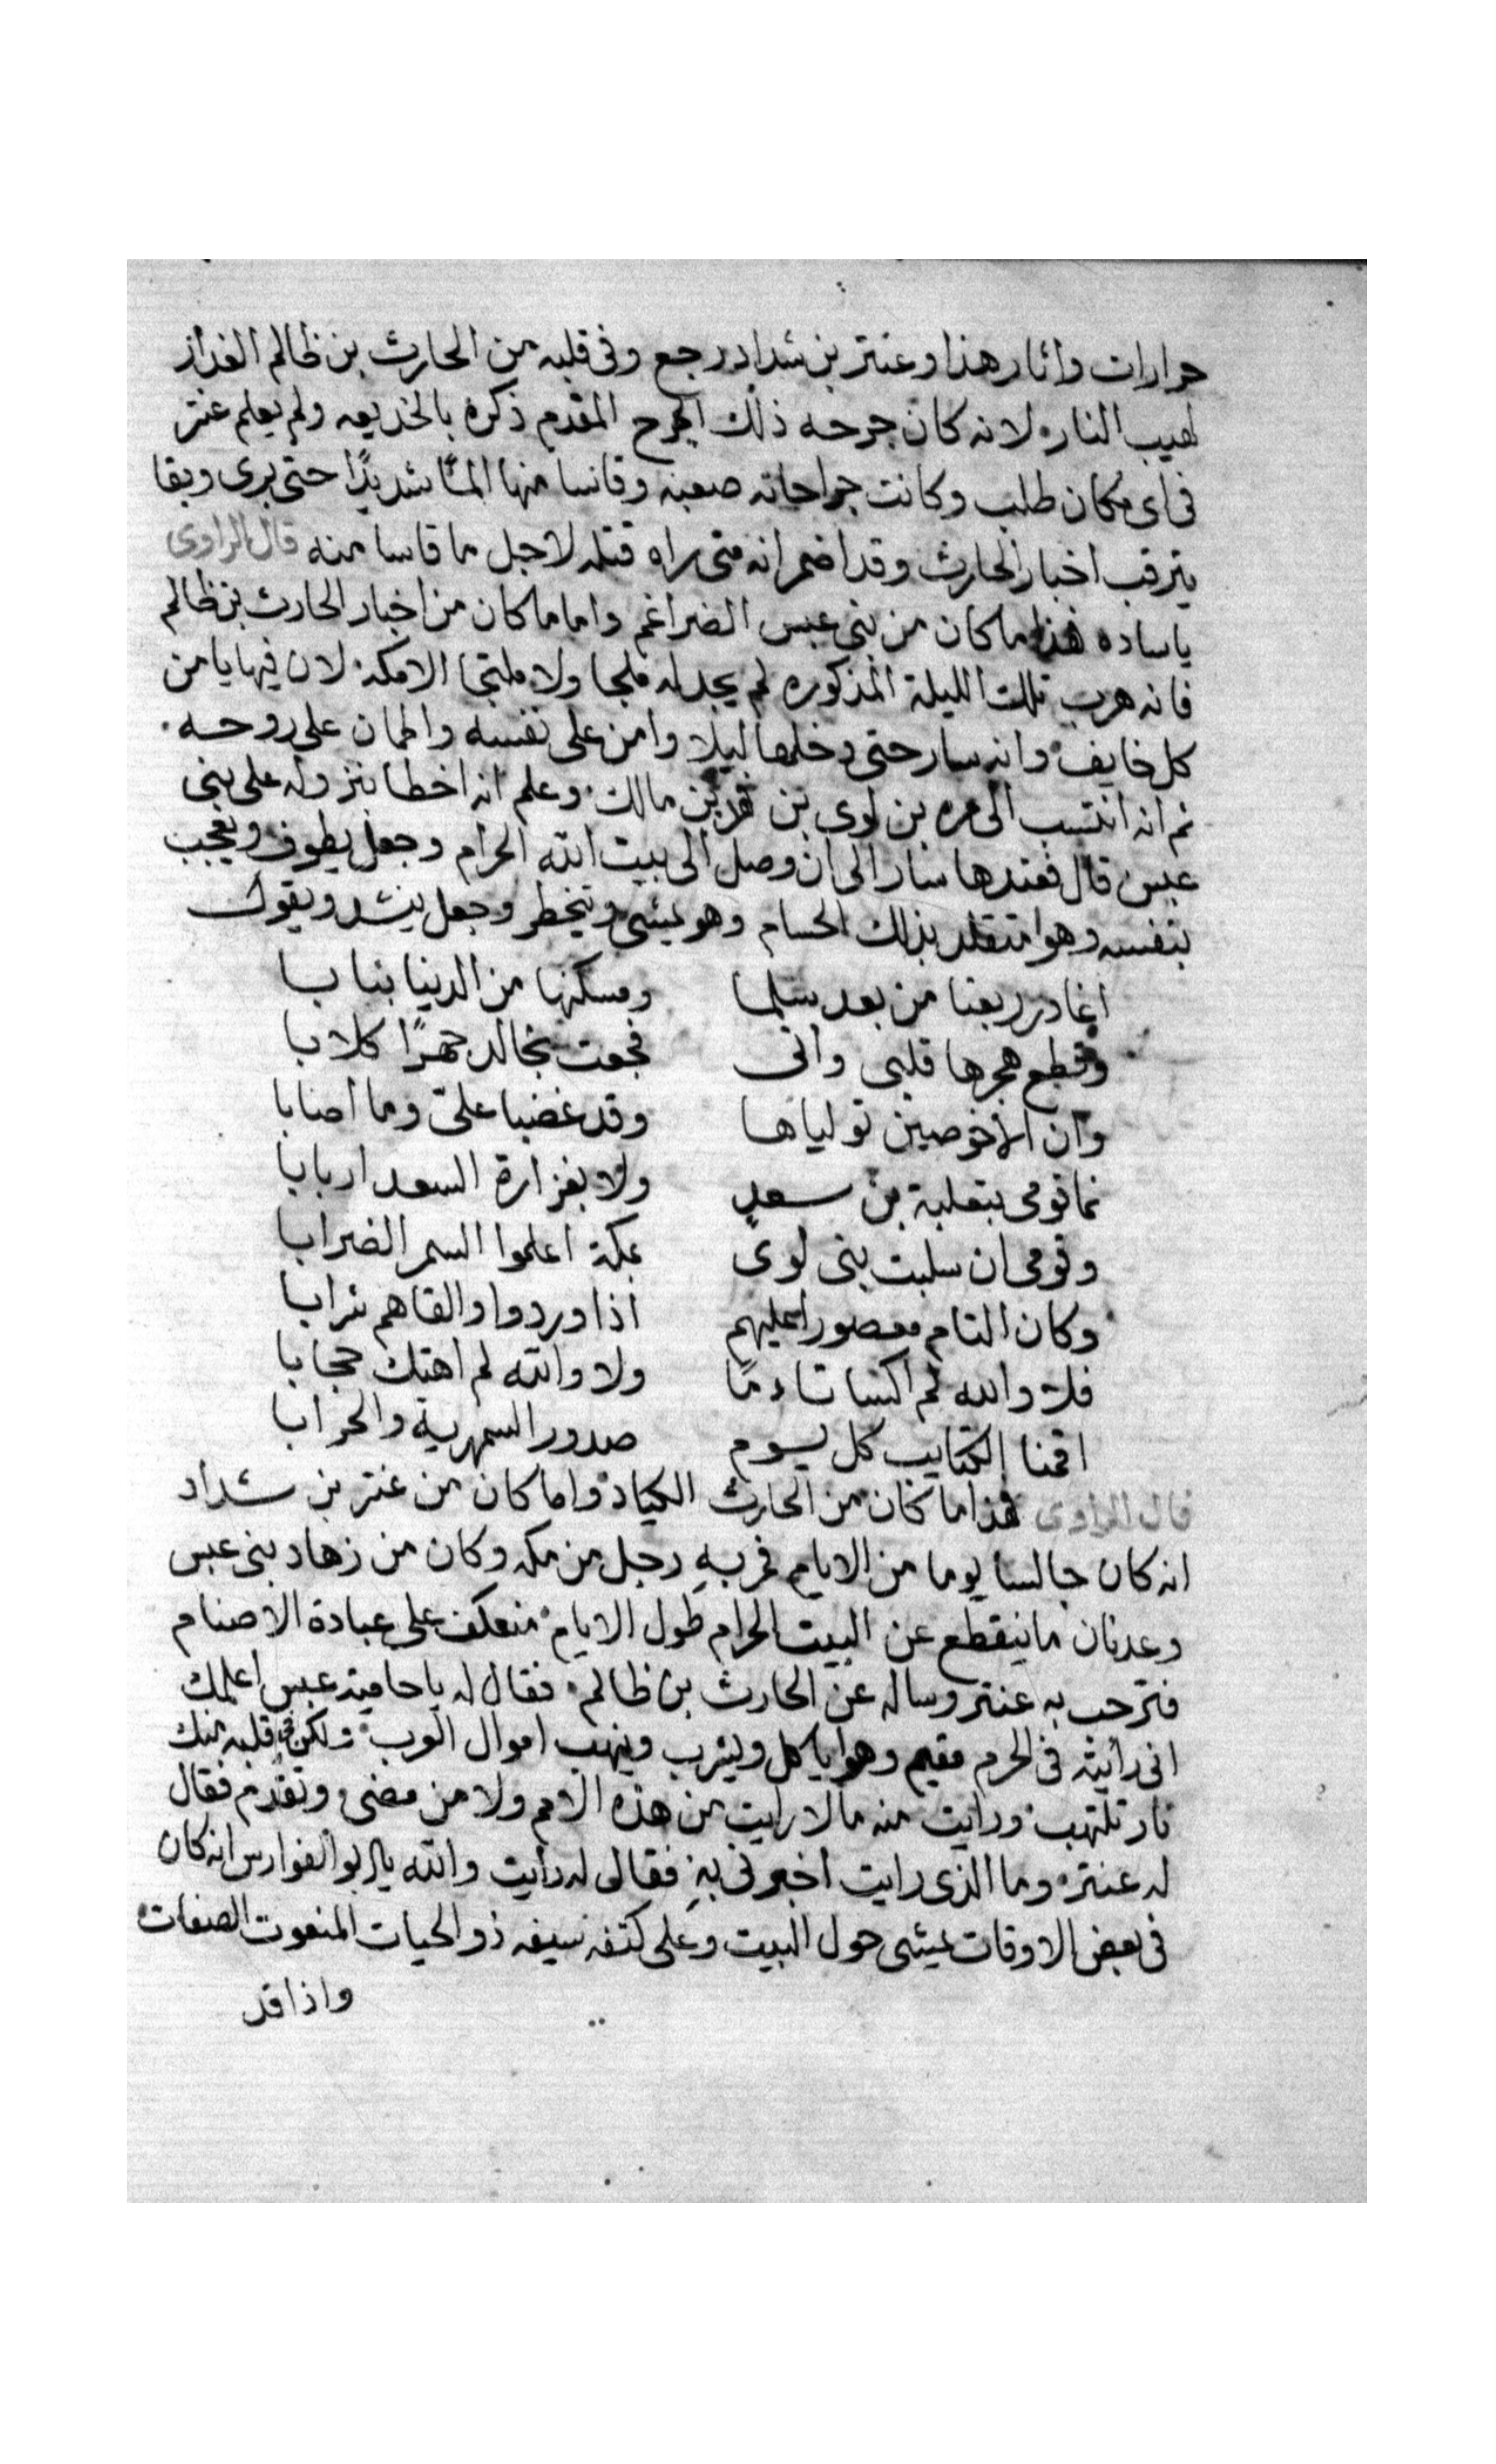 حرارات واثار هذا وعنتر بن شداد رجع وفى قلبه من الحارث بن ظالم الغدار
لهيب النار لانه كان جرحه ذلك الجرح المقدم ذكره بالخديعه ولم يعلم عنتر
فى اى مكان طلب وكانت جراحاته صعبه وقاسا منها المًا شديدًا حتى برى وبقا
يترقب اخبار الحارث وقد اضمر انه متى راه قتله لاجل ما قاسا منه قال الراوى
ياساده هذا ما كان من بنى عبس الضراغم واما ما كان من اخبار الحارث بن ظالم
فانه هرب تلك الليلة المذكوره لم يجد له ملجا ولا ملتجا الا مكة لان فيها يامن
كل خايف وانه سار حتى دخلها ليلا وامن على نفسه واطمان على روحه
ثم انه انتسب الى مره بن لوى بن فهر بن مالك وعلم انه اخطا بنزوله على بنى
عبس قال فعندها سار الى ان وصل الى بيت الله الحرام وجعل يطوف ويعجب
بنفسه وهوا متقلد بذلك الحسام وهو يمشى ويتخطر وجعل ينشد ويقول
اغادر ربعنا من بعد سلما ومسكنها من الدينا بنا با
وقطع هجرها قلبى وانى فجعت بخالد جهرًا كلابا
وان الاخوصين تولياها وقد غضبا علىّ وما اصابا
فما قومى بثعلبة بن سعدٍ ولا بفزارة السعد اربابا
وقومى ان سلبت بنى لوى بمكة اعلموا السمر الضرابا
وكان التام معصورا عليهم اذا وردوا والقاهم شرابا
فلا والله لم اكتسا تاءمًا ولا والله لم اهتك حجابا
اقمنا الكتايب كل يوم صدور السمهرية والحرابا
قال الراوى هذا ما كان من الحارث الكياد واما كان من عنتر بن شداد
انه كان جالسا يوما من الايام فمر بهِ رجل من مكه وكان من زهاد بنى عبس
وعدنان ما ينقطع عن البيت الحرام طول الايام منعكف على عبادة الاصنام
فترحب به عنتر وساله عن الحارث بن ظالم فقال له يا حامية عبس اعلمك
انى رائيته فى الحرم مقيم وهوا ياكل ويشرب وينهب اموال العرب ولكن فى قلبه منك
نار تلتهب ورايت منه ما لا رايت من هذه الامم ولا من مضى وتقدم فقال
له عنتره وما الذى رايت اخبرنى بهِ فقال له رايت والله يا ابو الفوارس انه كان
فى بعض الاوقات يمشى حول البيت وعلى كتفه سيفه ذو الحيات المنعوت الصفات
واذا قد